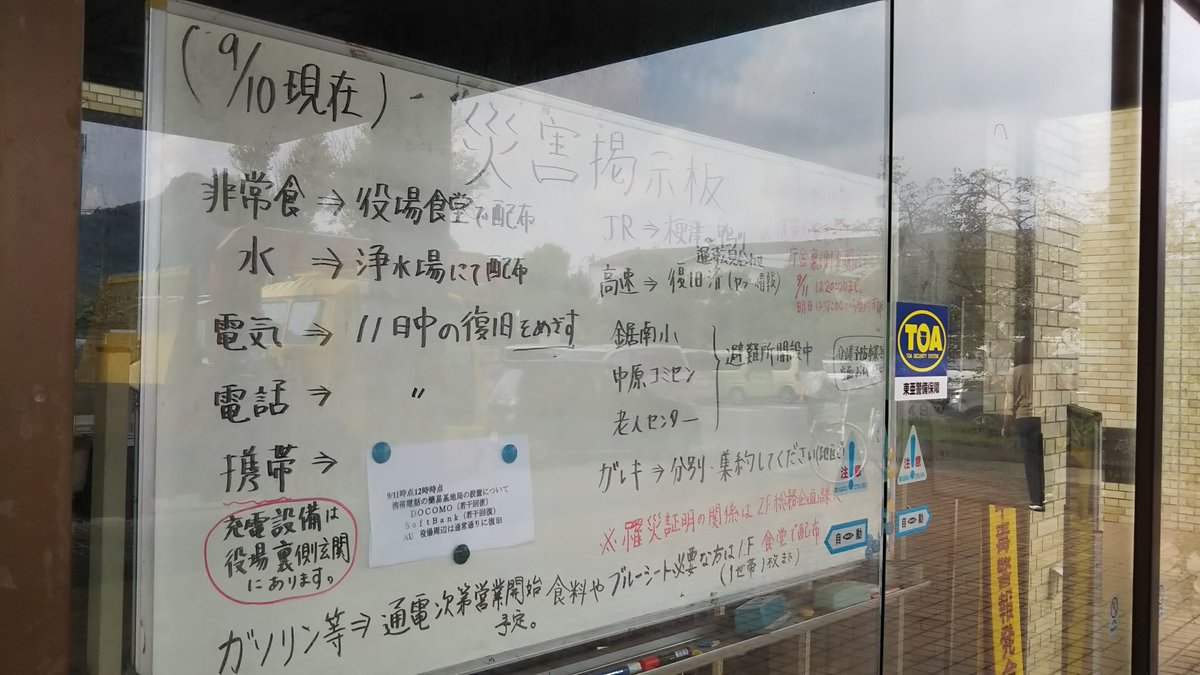 (9/10現在)
災害掲示板
非常食⇒役場食堂で配布
水 ⇒浄水場にて配布
電気⇒11日中の復旧をめざす
電話⇒ 〃
携帯⇒
9/11時点12時時点
携帯電話の簡易基地局の設置について
DOCOMO（若干回復）
SoftBank（若干回復）
AU 役場周辺は通常通りに復旧
充電設備は
役場裏側玄関
にあります。
ガソリン等⇒通電次第営業開始
予定。
JR⇒
運転見合せ
高速⇒復旧済
鋸南小
中原コミセン
老人センター
避難所開設中
ガレキ⇒分別・集約してください
※罹災証明の関係は2F総務企画課へ
食料やブルーシート必要な方は1F食堂で配布
(1世帯1枚まで)
9/11は20:00まで
TOA
TOA SECURITY SYSTEM
東亜警備保障
注意
注意
自動
自動